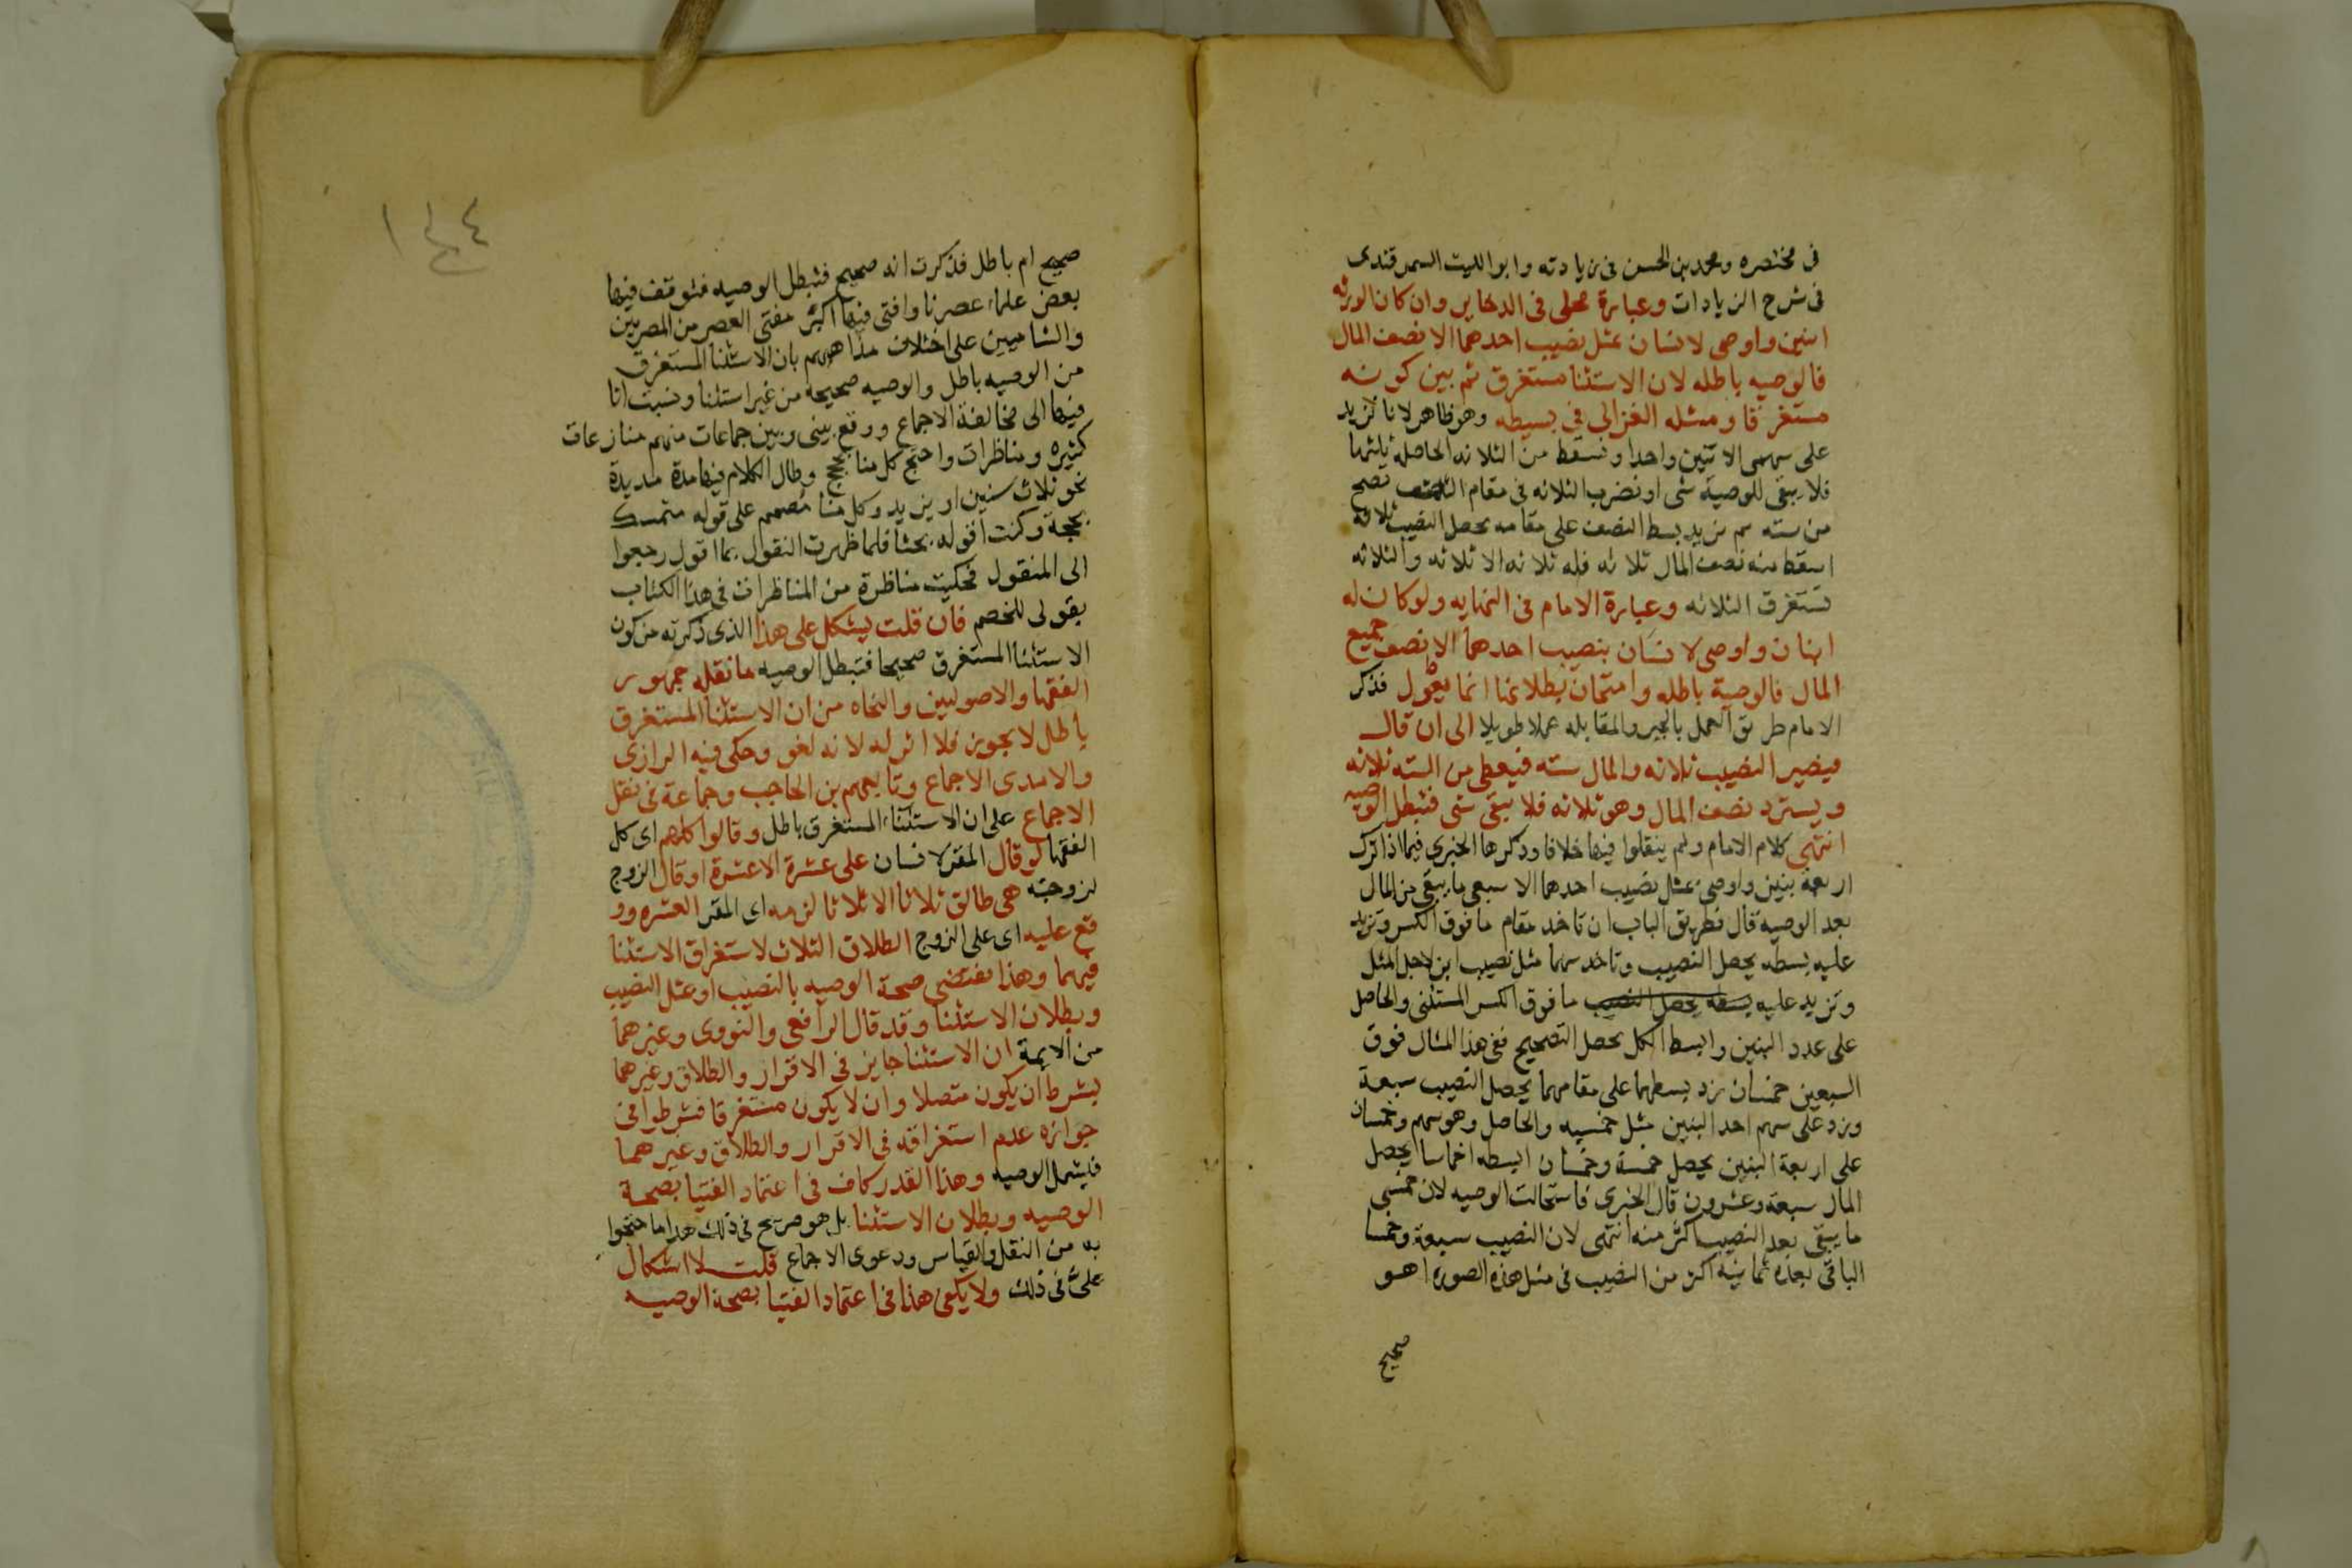 فى مختصره ومحمد بن الحسن فى زياداته وابو الليث السمرقندى
فى شرح الزيادات وعبارة محلى فى الدخاير وان كان الورثه
ابنين واوصى لانسان بمثل نصيب احدهما الا نصف المال
فالوصيه باطله لان الاستثنا مستغرق ثم بين كونه
مستغرقا ومثله الغزالى فى بسيطه وهو ظاهر لانا نزيد
على سهمى الاثنين واحدا ونسقط من الثلاثه الحاصله ثلثها
فلا يبقى للوصية شى او نضرب الثلاثه فى مقام النصف تصح
من سته ثم نزيد بسط النصف على مقامه يحصل النصيب ثلاثة
اسقط منه نصف المال ثلاثه فله ثلاثه الا ثلاثه والثلاثه
تستغرق الثلاثه وعبارة الامام فى النهايه ولو كان له
ابنان واوصى لانسان بنصيب احدهما الا نصف جميع
المال فالوصية باطله وامتحان بطلانها انما يعول فذكر
الامام طريق العمل بالجبر والمقابله عملا طويلا الى ان قال
فيصير النصيب ثلاثه والمال سته فيعطى من السته ثلاثه
ويسترد نصف المال وهو ثلاثه فلا يبقى شى فتبطل الوصيه
انتهى كلام الامام ولم ينقلوا فيها خلافا وذكرها الخبرى فيما اذا ترك
اربعة بنين واوصى بمثل نصيب احدهما الا سبعى ما يبقى من المال
بعد الوصية قال فطريق الباب ان تاخد مقام ما فوق الكسر وتزيد
عليه بسطه يحصل النصيب وتاخد سهما مثل نصيب ابن لاجل المثل
وتزيد عليه بسطه يحصل النصيب ما فوق الكسر المستثنى والحاصل
على عدد البنين وابسط الكل يحصل التصحيح ففى هذا المثال فوق
السبعين خمسان زد بسطهما على مقامهما يحصل النصيب سبعة
وزد على سهم احد البنين مثل خمسيه والحاصل وهو سهم وخمسان
على اربعة البنين يحصل خمسة وخمسان ابسطه اخماسا يحصل
المال سبعة وعشرون قال الخبرى فاستحالت الوصيه لان خمسى
ما يبقى بعد النصيب اكثر منه انتهى لان النصيب سبعة وخمسا
الباقى بعده ثمانيه اكثر من النصيب فى مثل هذه الصوره اهو
صحيح
١٤٤
صحيح ام باطل فذكرت انه صحيح فتبطل الوصيه فتوقف فيها
بعض علماء عصرنا وافتى فيها اكثر مفتى العصر من المصريين
والشاميين على اختلاف مذاهبهم بان الاستثنا المستغرق
من الوصيه باطل والوصيه صحيحة من غير استثنا ونسبت انا
فيها الى مخالفة الاجماع ووقع بينى وبين جماعات منهم منازعات
كثيره ومناظرات واحتج كل منا بحجج وطال الكلام فيها مدة مديدة
نحو ثلاث سنين او يزيد وكل منا مصمم على قوله متمسك
بحجة وكنت اقوله بحثا فلما ظهرت النقول بما اقول رجعوا
الى المنقول فحكيت مناظرة من المناظرات فى هذا الكتاب
بقولى للخصم فان قلت يشكل على هذا الذى ذكرته من كون
الاستثنا المستغرق صحيحا فتبطل الوصيه ما نقله جمهور
الفقها والاصوليين والنحاه من ان الاستثنا المستغرق
باطل لا يجوز فلا اثر له لانه لغو وحكى فيه الرازى
والامدى الاجماع وتابعهم بن الحاجب وجماعة فى نقل
الاجماع على ان الاستثناء المستغرق باطل وقالوا كلهم اى كل
الفقها لو قال المقر لانسان على عشرة الا عشرة او قال الزوج
لزوجته هى طالق ثلاثا الا ثلاثا لزمه اى المقر العشره وو
قع عليه اى على الزوج الطلاق الثلاث لاستغراق الاستثنا
فيهما وهذا يقتضى صحة الوصيه بالنصيب او بمثل النصيب
وبطلان الاستثنا وقد قال الرافعى والنووى وغيرهما
من الايمة ان الاستثنا جايز فى الاقرار والطلاق وغيرهما
بشرط ان يكون متصلا وان لا يكون مستغرقا فشرطوا فى
جوازه عدم استغراقه فى الاقرار والطلاق وغيرهما
فيشمل الوصيه وهذا القدر كاف فى اعتماد الفتيا بصحة
الوصيه وبطلان الاستثنا بل هو صريح فى ذلك هذا ما احتجوا
به من النقل والقياس ودعوى الاجماع قلت لا اشكال
على فى ذلك ولا يكفى هذا فى اعتماد الفتيا بصحة الوصيه